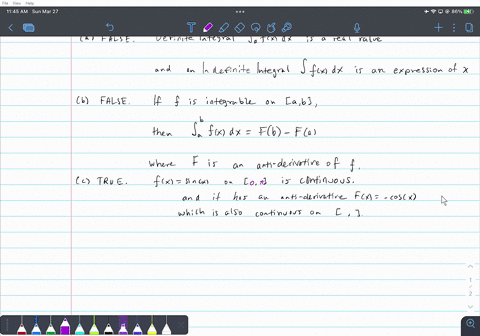 11:45 AM Sun Mar 27
86%
(a) FALSE. Definite Integral ∫ₐᵇ f(x) dx is a real value
and an Indefinite Integral ∫ f(x) dx is an expression of x
(b) FALSE. If f is integrable on [a,b],
then ∫ₐᵇ f(x) dx = F(b) - F(a)
where F is an anti-derivative of f.
(c) TRUE. f(x) = sin(x) on [0,π] is continuous.
and it has an anti-derivative F(x) = -cos(x)
which is also continuous on [ , ].